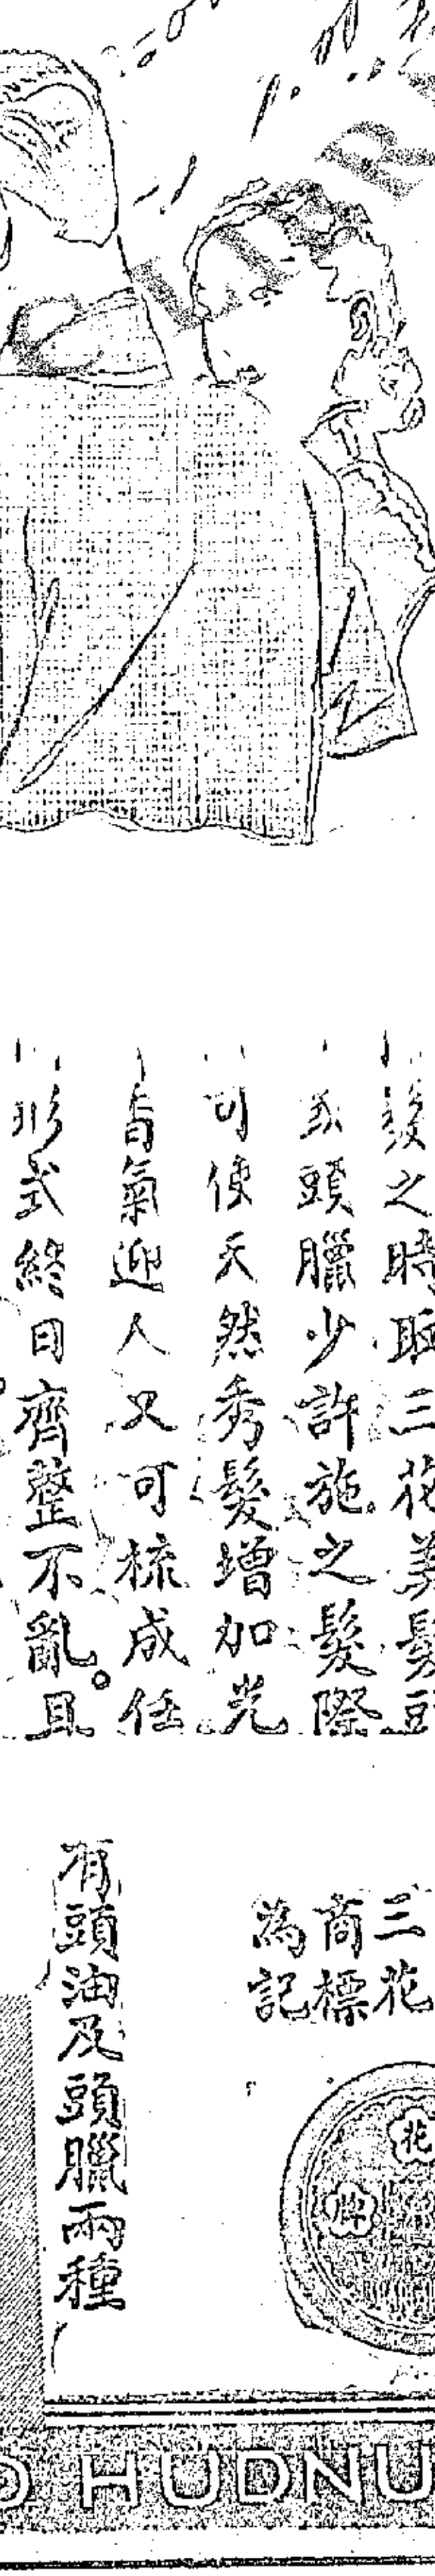 髮之時取三花美髮頭
頭臘少許施之髮際
可使天然秀髮增加光
香氣迎人又可梳成任
形式終日齊整不亂。且
三花
商標
為記
有頭油及頭臘兩種
花
牌
HUDNU